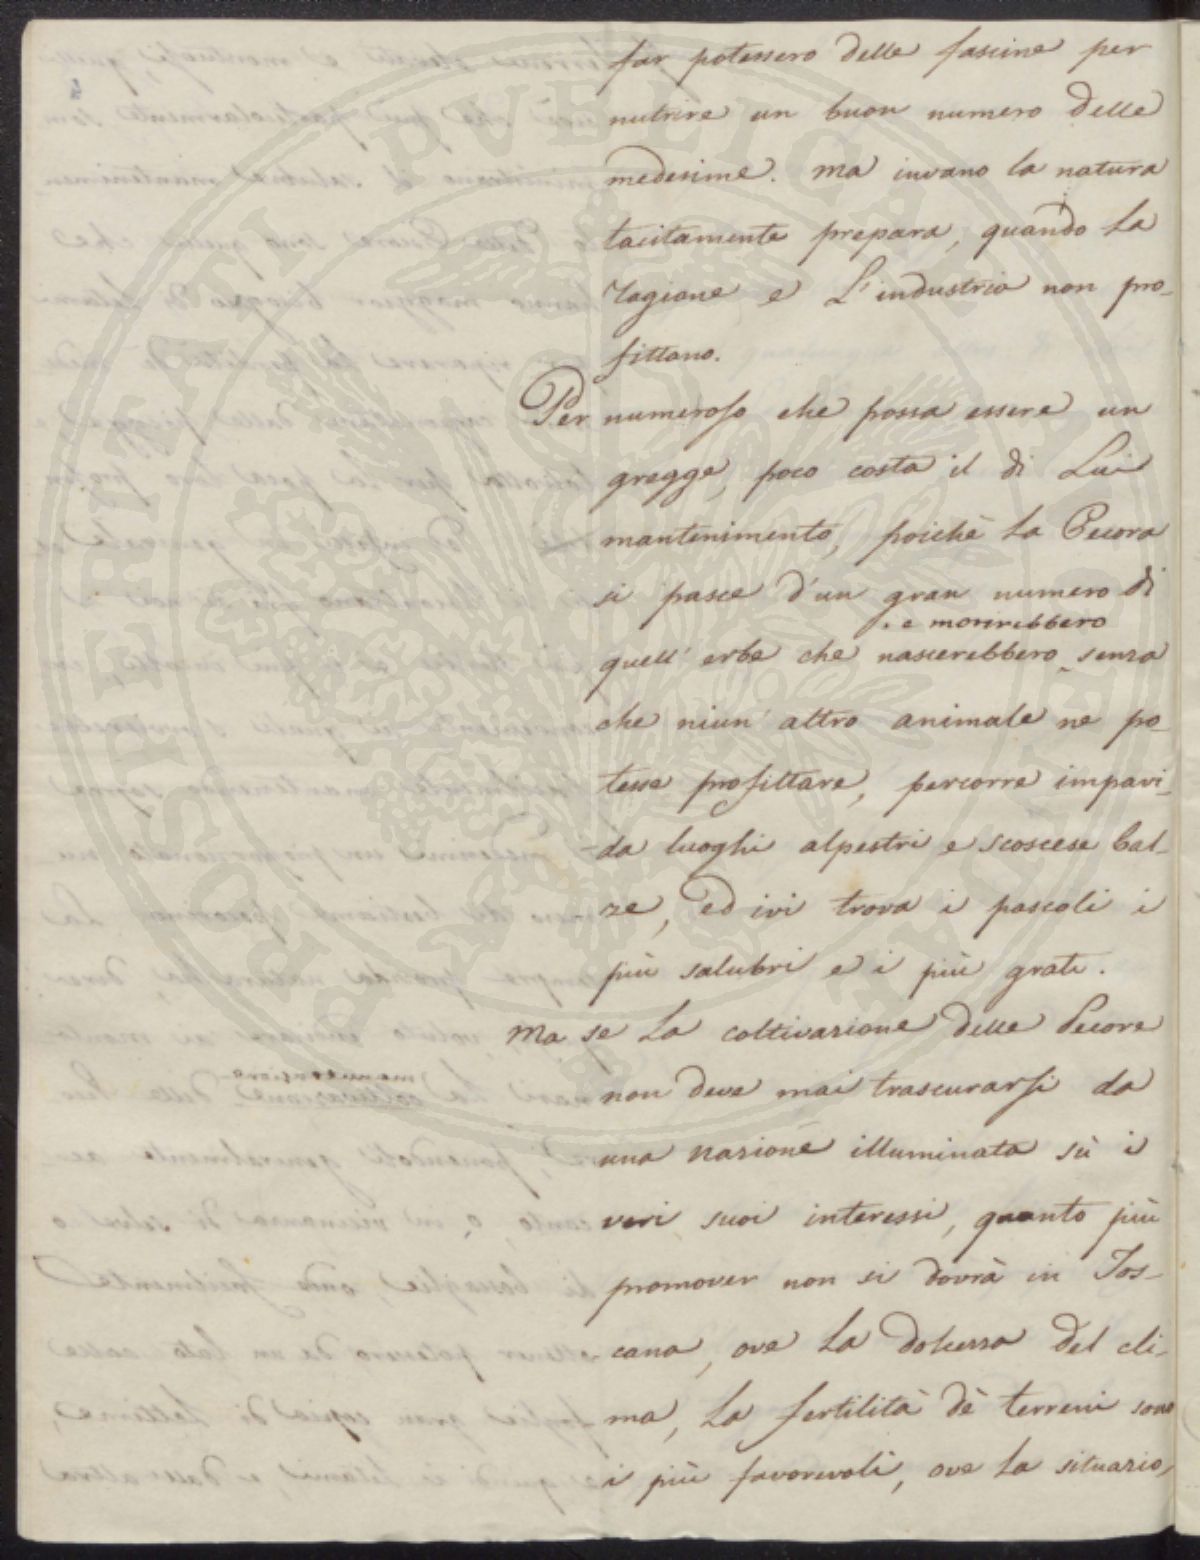 far potessero delle fascine per
nutrire un buon numero delle
medesime. ma invano la natura
tacitamente prepara, quando la
ragione e L'industria non pro-
fittano.
Per numeroso che possa essere un
gregge, poco costa il di Lui
mantenimento, poichè la Pecora
si pasce d'un gran numero di
e morirebbero
quell' erbe che nascerebbero senza
che niun' altro animale ne po-
tesse profittare, percorre impavi-
da luoghi alpestri e scoscese bal-
ze, ed ivi trova i pascoli i
più salubri e i più grati.
Ma se la coltivazione delle Pecore
non deve mai trascurarsi da
una nazione illuminata sù i
veri suoi interessi, quanto più
promover non si dovrà in Tos-
cana, ove la dolcezza del cli-
ma, la fertilità dè terreni sono
i più favorevoli, ove la situazio-